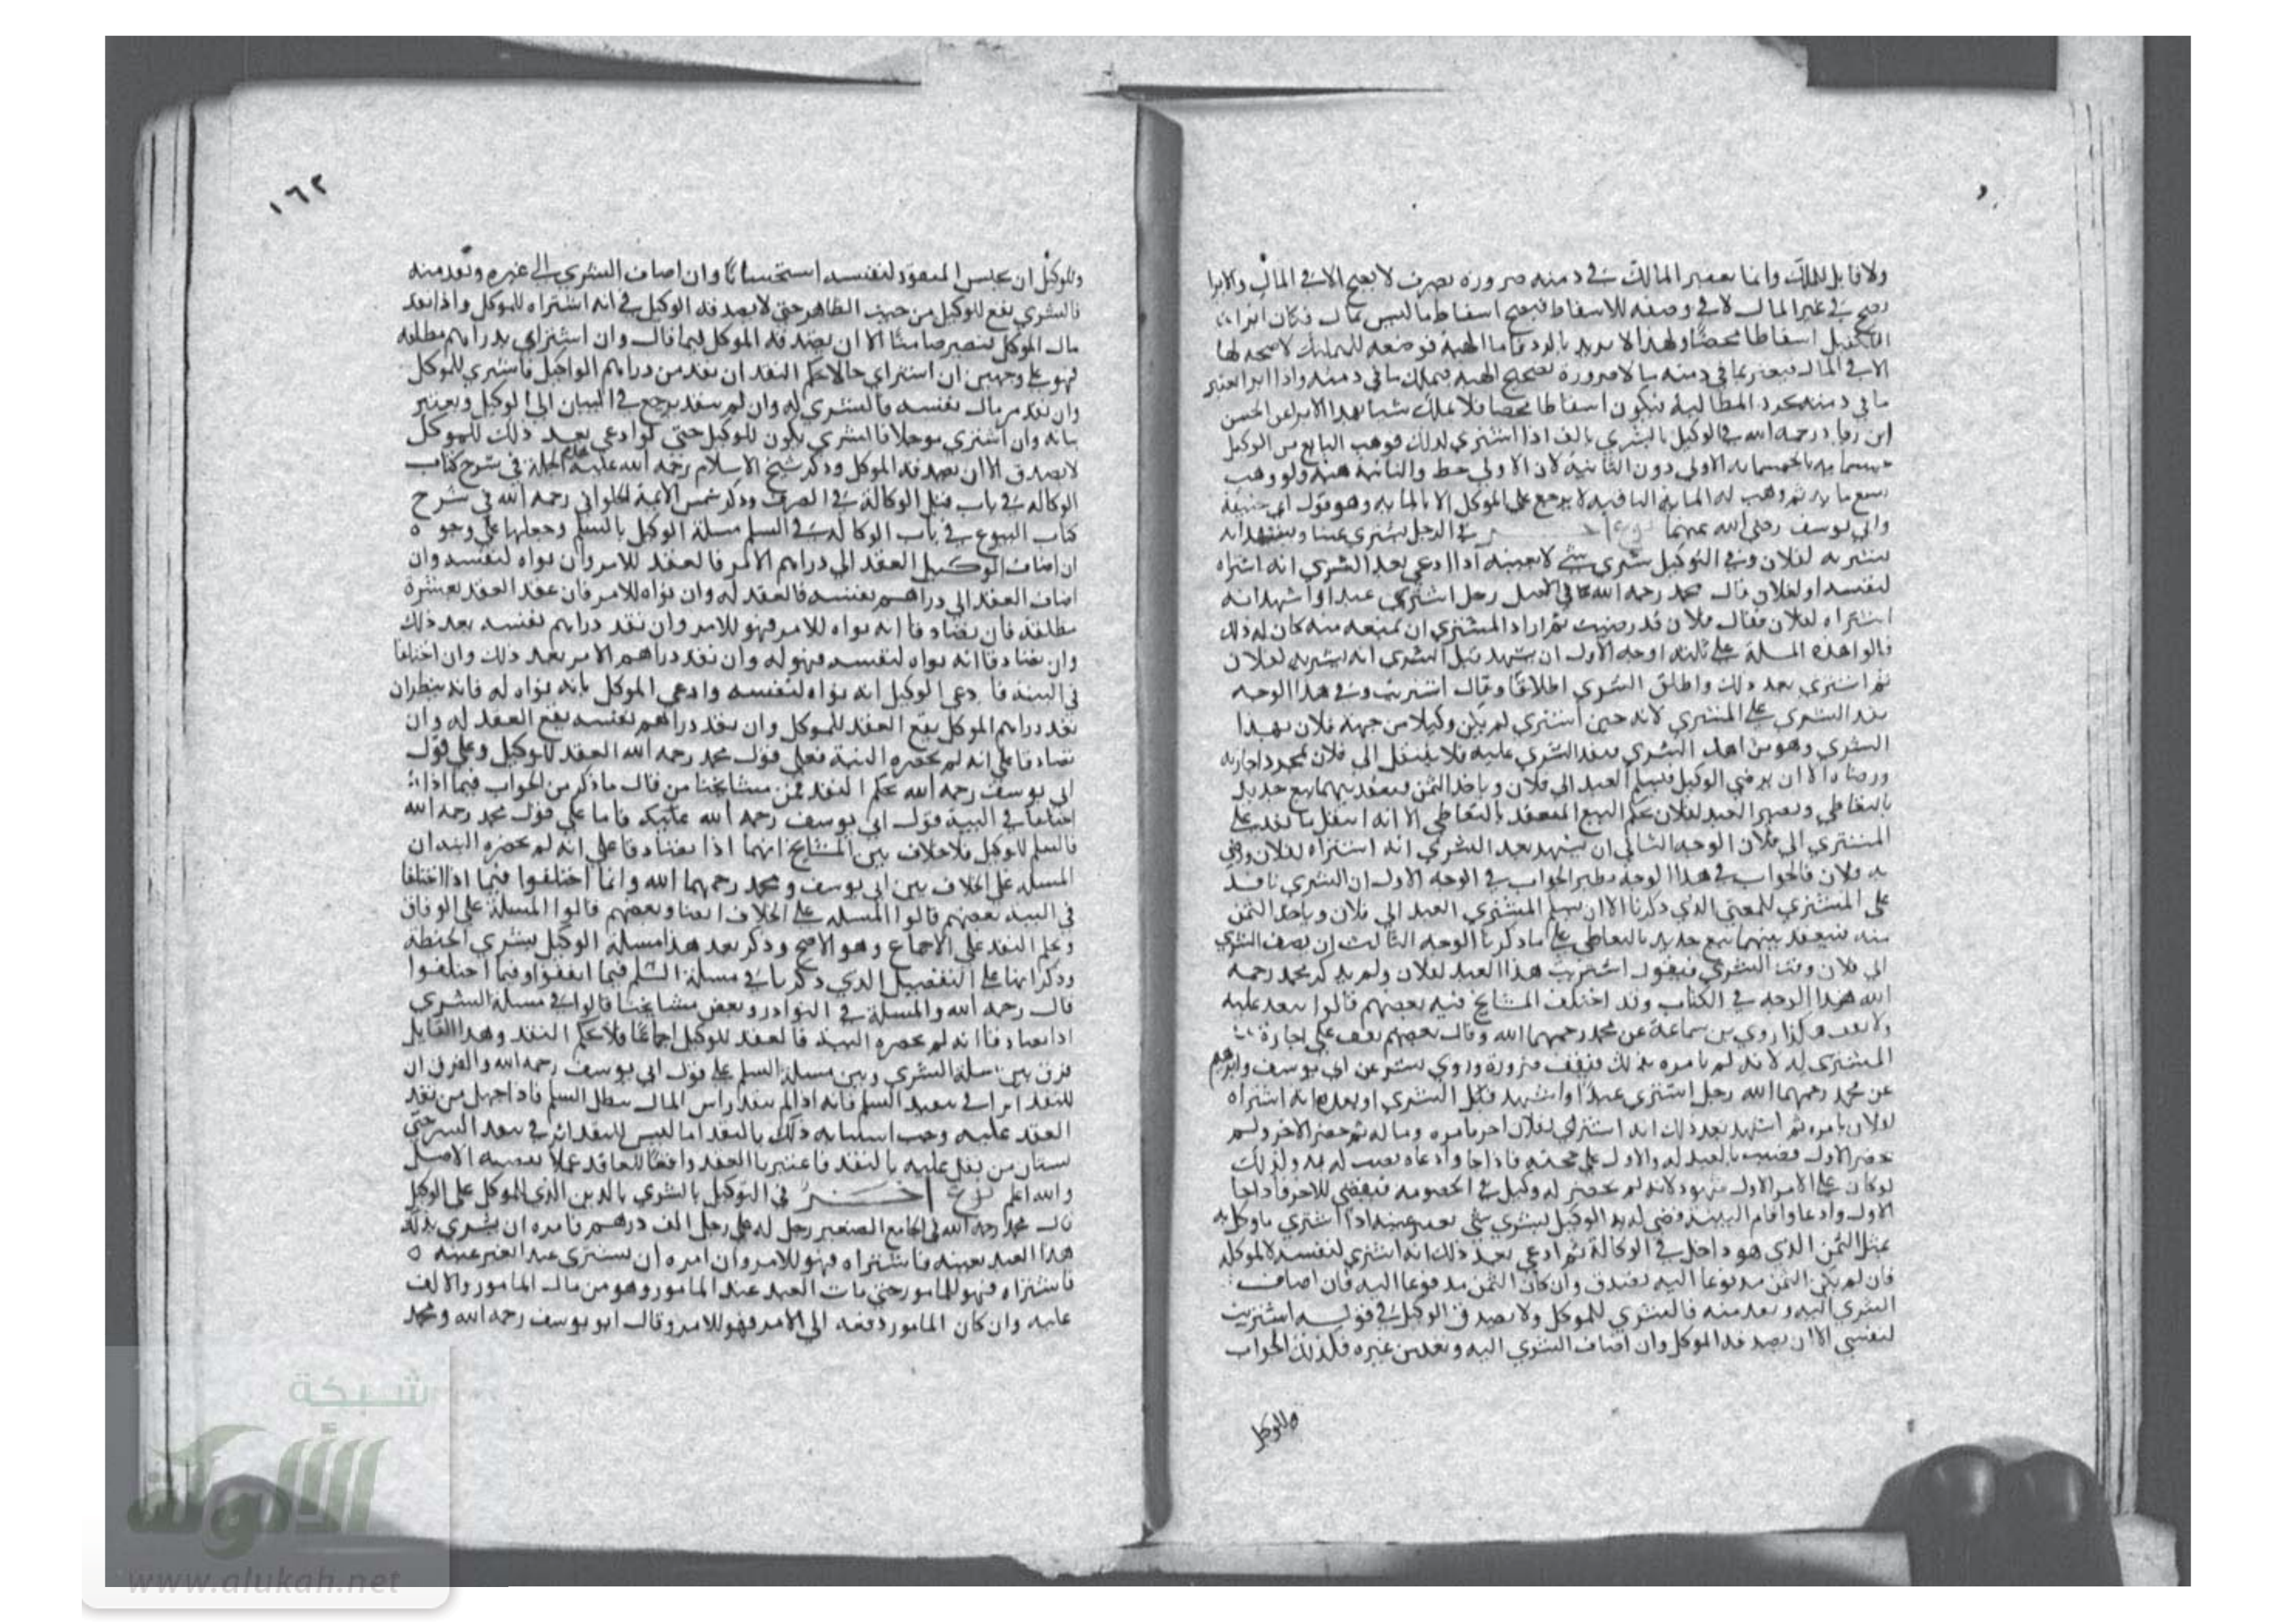 ولا قابل للملك وانما يعتبر المالك في دمنه ضرورة تصرف لا يصح الا في المال والابرا
يصح في غير المال لا في وصفه للاسقاط فيصح اسقاط ما ليس بمال فكان ابراء
الكفيل اسقاطا محضا ولهذا لا يرتد بالرد فاما الهبة فوضعه للتمليك لا صحة لها
الا في المال فيعتبر ما في ذمته مالا ضرورة تصحيح الهبة فيملك ما في ذمته واذا ابرا اعتبر
ما في ذمته مجرد المطالبة فيكون اسقاطا محضا فلا يملك شيا بهذا الابراء عن الحسن
ابن زياد رحمه الله في الوكيل بالشري بالف اذا اشتري لذلك فوهب البايع من الوكيل
خمسمايه بالخمسمايه الاولي دون الثانية لان الاولي حط والثانية هبة ولو وهب
تسع مايه ثم وهب له الماية الباقيه لا يرجع على الموكل الا بالمايه وهو قول ابي حنيفة
وابي يوسف رضي الله عنهما نوع اخر في الرجل يشتري عينا ويشهد انه
يشتريه لفلان وفي التوكيل بشري شي لا بعينه اذا ادعي بعد الشري انه اشتراه
لنفسه او لفلان قال محمد رحمه الله في الاصل رجل اشتري عبدا واشهد انه
اشتراه لفلان فقال فلان قد رضيت ثم اراد المشتري ان يمنعه منه كان له ذلك
قالوا هذه المسلة على ثلثة اوجه الاول ان يشهد قبل الشري انه يشتريه لفلان
ثم اشتري بعد ذلك واطلق الشري اطلاقا وقال اشتريت وفي هذا الوجه
نفذ الشري على المشتري لانه حين اشتري لم يكن وكيلا من جهة فلان بهذا
الشري وهو من اهل الشري فنفذ الشري عليه فلا ينتقل الي فلان بمجرد اجازته
ورضاه الا ان يرضي الوكيل فيسلم العبد الي فلان وياخذ الثمن فينعقد بينهما بيع جديد
بالتعاطي ويصير العبد لفلان بحكم البيع المنعقد بالتعاطي الا انه انتقل ما نفذ على
المشتري الي فلان الوجه الثاني ان يشهد بعد الشري انه اشتراه لفلان ورضي
به فلان فالجواب في هذا الوجه نظير الجواب في الوجه الاول ان الشري نافذ
على المشتري للمعني الذي ذكرنا الا ان يسلم المشتري العبد الي فلان وياخذ الثمن
منه فينعقد بينهما بيع جديد بالتعاطي على ما ذكرنا الوجه الثالث ان يضيف الشري
الي فلان وقت الشري فيقول اشتريت هذا العبد لفلان ولم يذكر محمد رحمه
الله هذا الوجه في الكتاب وقد اختلف المشايخ فيه بعضهم قالوا ينفذ عليه
ولا يقف هكذا روي بن سماعة عن محمد رحمهما الله وقال بعضهم يقف على اجازة
المشتري له لانه لم يامره بذلك فيقف ضرورة وروي بشر عن ابي يوسف وابراهيم
عن محمد رحمهما الله رجل اشتري عبدا واشهد قبل الشري او بعده انه اشتراه
لفلان بامره ثم اشهد بعد ذلك انه اشتراه لفلان اخر بامره وماله ثم حضر الاخر ولم
يحضر الاول فضي بالعبد له والاول على حجته فاذا جا وادعاه يقضي له به ولذلك
لو كان على الامر الاول شهود لانه لم يحضر له وكيل في الخصومه فيقضي للاخر فاذا جا
الاول وادعا واقام البينة قضي له به الوكيل بشري شي بغير عينه اذا اشتري ما وكل به
بمثل الثمن الذي هو داخل في الوكالة ثم ادعي بعد ذلك انه اشتري لنفسه لا لموكله
فان لم يكن الثمن مدفوعا اليه يصدق وان كان الثمن مدفوعا اليه فان اضاف
الشري اليه ونقد منه فالشري للموكل ولا يصدق الوكيل في قوله اشتريت
لنفسي الا ان يصدقه الموكل وان اضاف الشري اليه ونقد من غيره فكذلك الجواب
وللوكيل
١٦٢
وللوكيل ان يحبس المنقود لنفسه استحسانا وان اضاف الشري الي غيره ونقد منه
فالشري يقع للوكيل من حيث الظاهر حتي لا يصدقه الوكيل في انه اشتراه للموكل واذا نقد
مال الموكل يصير ضامنا الا ان يصدقه الموكل فيما قال وان اشتراي بدراهم مطلقه
فهو على وجهين ان اشتراي حالا يحكم النقد ان نقد من دراهم الواكيل فاشتري للموكل
وان نقد من مال نفسه فالشري له وان لم ينقد يرجع في البيان الي الوكيل ويعتبر
بيانه وان اشتري موجلا فالشري يكون للوكيل حتي لو ادعي بعد ذلك للموكل
لا يصدق الا ان يصدقه الموكل وذكر شيخ الاسلام رحمة الله عليه هذه الجملة في شرح كتاب
الوكالة في باب قبل الوكالة في الصرف وذكر شمس الايمة الحلواني رحمه الله في شرح
كتاب البيوع في باب الوكالة في السلم مسلة الوكيل بالسلم وجعلها على وجوه
ان اضاف الوكيل العقد الي دراهم الامر فالعقد للامر وان نواه لنفسه وان
اضاف العقد الي دراهم نفسه فالعقد له وان نواه للامر فان عقد العقد بعشرة
مطلقة فان تصادقا انه نواه للامر فهو للامر وان نقد دراهم نفسه بعد ذلك
وان تصادقا انه نواه لنفسه فهو له وان نقد دراهم الامر بعد ذلك وان اختلفا
في النية فادعي الوكيل انه نواه لنفسه وادعي الموكل بانه نواه له فانه ينظر ان
نقد دراهم الموكل يقع العقد للموكل وان نقد دراهم نفسه يقع العقد له وان
تصادقا على انه لم يحضره النية فعلي قول محمد رحمه الله العقد للوكيل وعلي قول
ابي يوسف رحمه الله يحكم النقد فمن مشايخنا من قال ما ذكر من الجواب فيما اذا
اختلفا في النية قول ابي يوسف رحمه الله عليه فاما على قول محمد رحمه الله
فالسلم للوكيل فلا خلاف بين المشايخ انهما اذا تصادقا علي انه لم يحضره النية ان
المسلة على الخلاف بين ابي يوسف ومحمد رحمهما الله وانما اختلفوا فيما اذا اختلفا
في النية بعضهم قالوا المسلة على الخلاف ايضا وبعضهم قالوا المسلة على الوفاق
ويحكم النقد على الاجماع وهو الاصح وذكر بعد هذا مسلة الوكيل بشري الحنطة
وذكر انها على التفصيل الذي ذكرنا في مسلة السلم فيما اتفقوا وفيما اختلفوا
قال رحمه الله والمسلة في النوادر وبعض مشايخنا قالوا في مسلة الشري
اذا تصادقا انه لم يحضره النية فالعقد للوكيل اجماعا فلا يحكم النقد وهذا القايل
فرق بين مسلة الشري وبين مسلة السلم على قول ابي يوسف رحمه الله والفرق ان
للنقد اثرا في تنفيذ السلم فانه اذا لم ينقد راس المال يبطل السلم فاذا جهل من نفذ
العقد عليه وجب استبانة ذلك بالنقد اما ليس للنقد اثر في نفاذ الشري حتي
يستبان من نفذ عليه بالنقد فاعتبرنا العقد واقعا للعاقد عملا بقضية الاصل
والله اعلم نوع اخر في التوكيل بالشري بالدين الذي للموكل على الوكيل
قال محمد رحمه الله في الجامع الصغير رجل له على رجل الف درهم فامره ان يشري بذلك
هذا العبد بعينه فاشتراه فهو للامر وان امره ان يشتري عبدا بغير عينه
فاشتراه فهو للمامور حتي مات العبد عند المامور وهو من مال المامور والالف
عليه وان كان المامور دفعه الي الامر فهو للامر وقال ابو يوسف رحمه الله ومحمد
شبكة
الألوكة
www.alukah.net